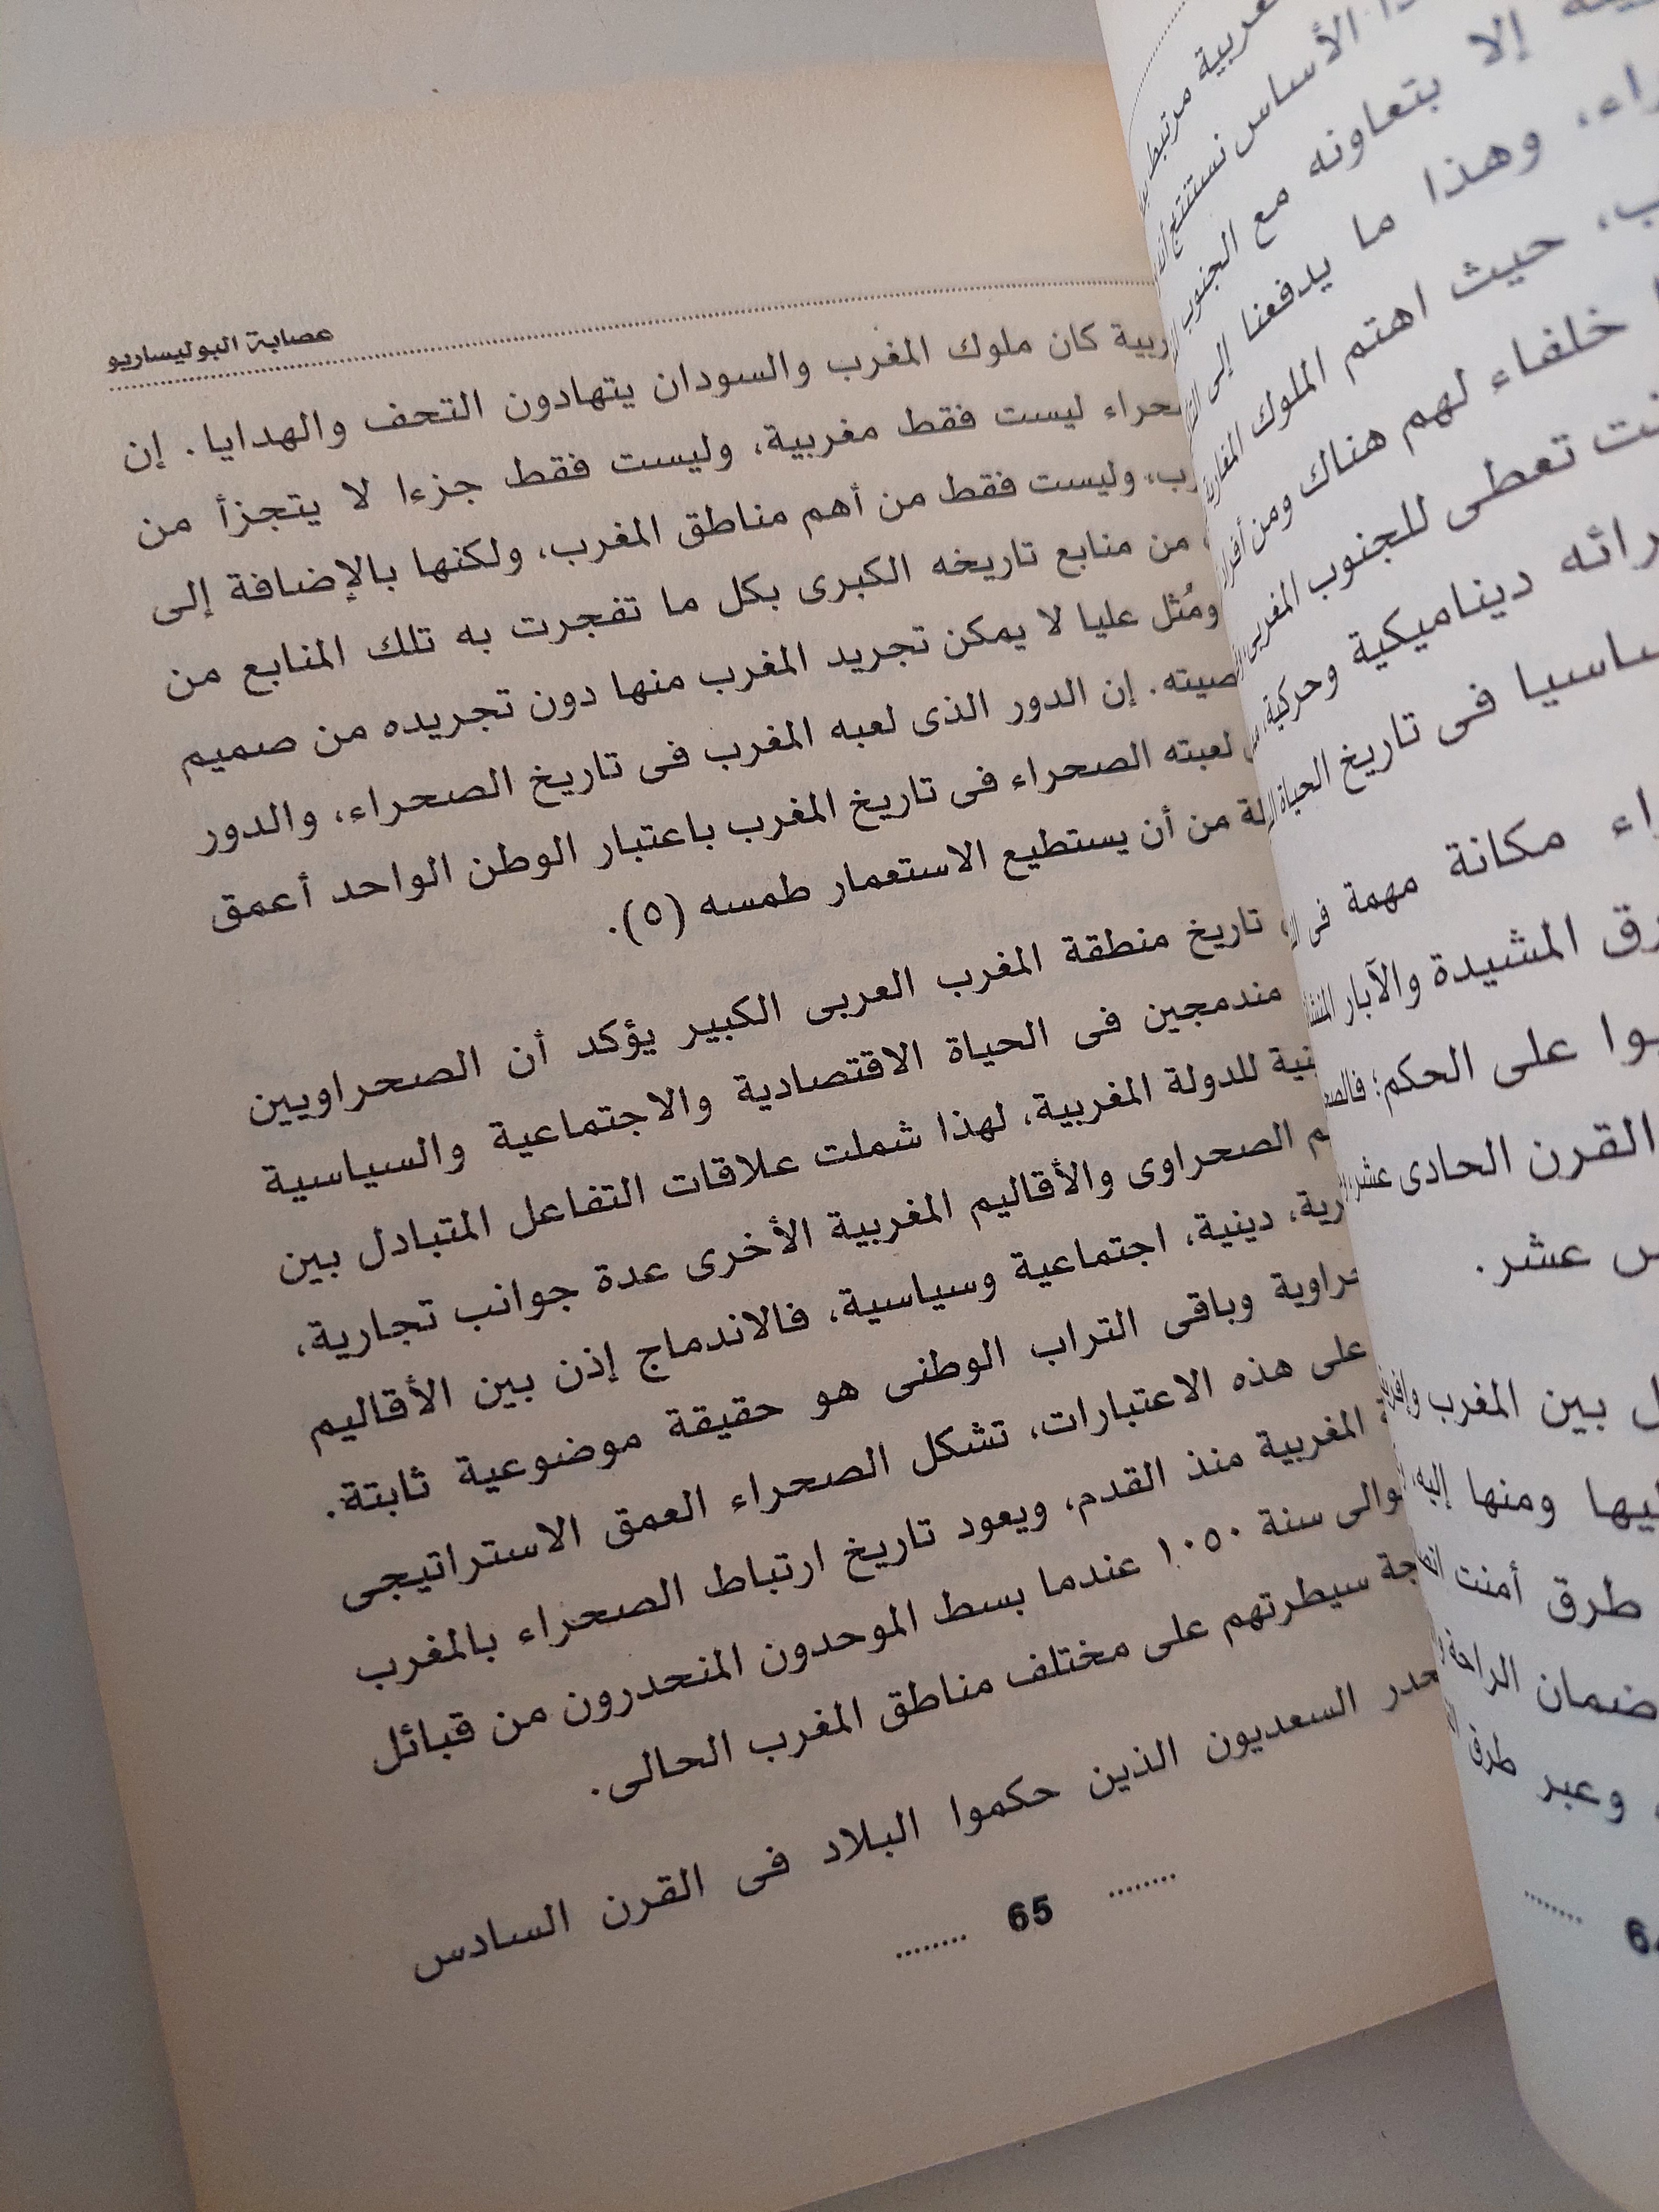 عصابة البوليساريو
كان ملوك المغرب والسودان يتهادون التحف والهدايا. إن
ليست فقط مغربية، وليست فقط جزءا لا يتجزأ من
وليست فقط من أهم مناطق المغرب، ولكنها بالإضافة إلى
من منابع تاريخه الكبرى بكل ما تفجرت به تلك المنابع من
ومُثل عليا لا يمكن تجريد المغرب منها دون تجريده من صميم
إن الدور الذى لعبه المغرب فى تاريخ الصحراء، والدور
لعبته الصحراء فى تاريخ المغرب باعتبار الوطن الواحد أعمق
من أن يستطيع الاستعمار طمسه (٥).
تاريخ منطقة المغرب العربى الكبير يؤكد أن الصحراويين
مندمجين فى الحياة الاقتصادية والاجتماعية والسياسية
للدولة المغربية، لهذا شملت علاقات التفاعل المتبادل بين
الصحراوى والأقاليم المغربية الأخرى عدة جوانب تجارية،
دينية، اجتماعية وسياسية، فالاندماج إذن بين الأقاليم
وباقى التراب الوطنى هو حقيقة موضوعية ثابتة.
على هذه الاعتبارات، تشكل الصحراء العمق الاستراتيجى
المغربية منذ القدم، ويعود تاريخ ارتباط الصحراء بالمغرب
سنة ١٠٥٠ عندما بسط الموحدون المنحدرون من قبائل
سيطرتهم على مختلف مناطق المغرب الحالى.
السعديون الذين حكموا البلاد فى القرن السادس
65
الأساس نستنتج
إلا بتعاونه مع الجنوب
وهذا ما يدفعنا إلى
حيث اهتم الملوك المغاربة
خلفاء لهم هناك ومن
تعطى للجنوب المغربى
ديناميكية وحركية
فى تاريخ الحياة
مكانة مهمة فى
المشيدة والآبار
على الحكم؛
القرن الحادى عشر
عشر.
بين المغرب
ومنها إليه
طرق أمنت
ضمان الراحة
وعبر طرق